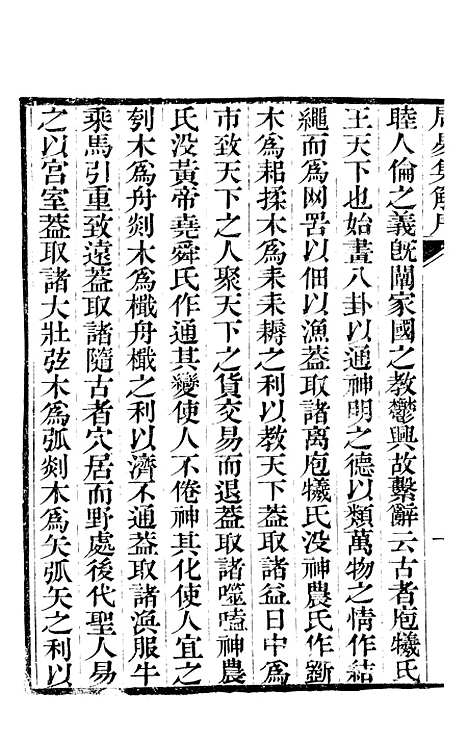 周易集解序
睦人倫之義旣闡家國之教鬱興故繫辭云古者庖犧氏
王天下也始畫八卦以通神明之德以類萬物之情作結
繩而爲网罟以佃以漁蓋取諸離庖犧氏没神農氏作斵
木爲耜揉木爲耒耒耨之利以教天下蓋取諸益日中爲
市致天下之人聚天下之貨交易而退蓋取諸噬嗑神農
氏没黃帝堯舜氏作通其變使人不倦神其化使人宜之
刳木爲舟剡木爲檝舟檝之利以濟不通蓋取諸渙服牛
乘馬引重致遠蓋取諸隨古者穴居而野處後代聖人易
之以宫室蓋取諸大壯弦木爲弧剡木爲矢弧矢之利以